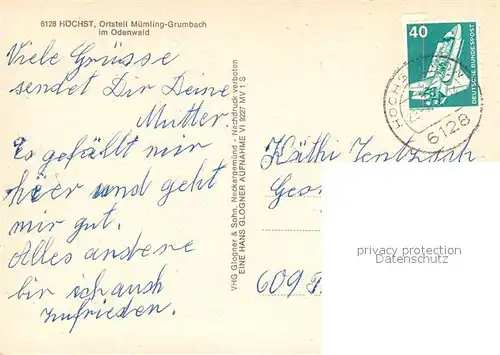 6128 HÖCHST, Ortsteil Mümling-Grumbach
im Odenwald
Viele Grüsse
sendet Dir Deine
Mutter
Es gefällt mir
hier und geht
mir gut.
Alles andere
bin ich auch
zufrieden.
VHG Glogner & Sohn, Neckargemünd - Nachdruck verboten
EINE HANS GLOGNER AUFNAHME VI 9227 MV 1 S
40
DEUTSCHE BUNDESPOST
HÖCHS
6128
Käthi
609
privacy protection
ansichtskarten-center.de